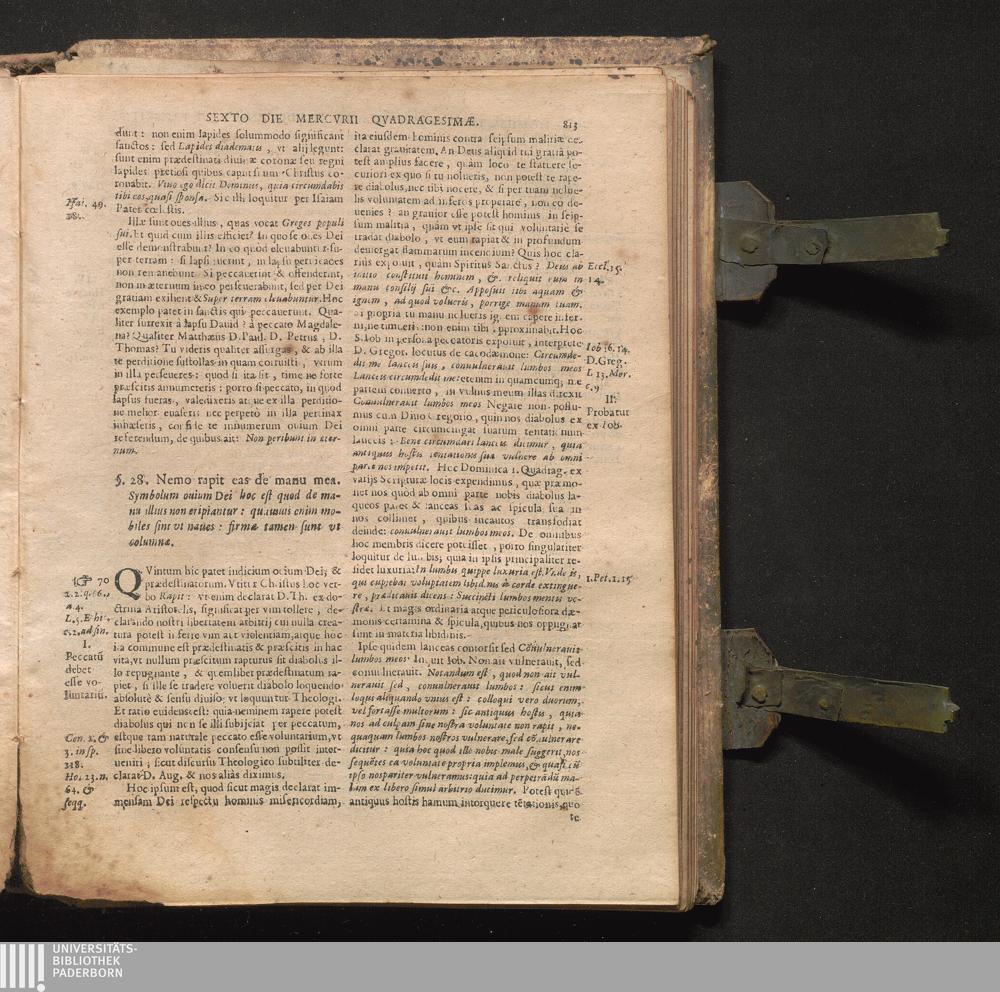 SEXTO DIE MERCVRII QVADRAGESIMÆ.
813
diunt: non enim lapides solummodo significant
sanctos: sed Lapides diadematis, vt alij legunt:
sunt enim prædestinati diuinæ coronæ seu regni
lapides pretiosi quibus caput suum Christus co-
ronabit. Viuo ego dicit Dominus, quia circumdabis
tibi eos quasi sponsa. Sic illi loquitur per Isaiam
Pater cœlestis.
Illæ sunt oues illius, quas vocat Greges populi
sui. Et quid cum illis efficiet? In quo se oues Dei
esse demonstrabunt? In eo quod eleuabuntur su-
per terram: si lapsi fuerint, in lapsu pertinaces
non remanebunt. Si peccauerint & offenderint,
non in æternum in eo perseuerabunt, sed per Dei
gratiam exibent & Super terram eleuabuntur. Hoc
exemplo patet in sanctis qui peccauerunt. Qua-
liter surrexit à lapsu Dauid? à peccato Magdale-
na? Qualiter Matthæus D. Paul. D. Petrus, D.
Thomas? Tu videris qualiter assurgas, & ab illa
te perditione sustollas in quam corruisti, verum
in illa perseueres: quod si ita sit, time ne forte
præscitis annumereris: porro si peccato, in quod
lapsus fueras, valedixeris atque ex illa perditio-
ne melior euaseris nec perpetò in illa pertinax
inhæseris, confide te in numerum ouium Dei
referendum, de quibus ait: Non peribunt in æter-
num.
§. 28. Nemo rapit eas de manu mea.
Symbolum ouium Dei hoc est quod de ma-
nu illius non eripiantur: quamuis enim mo-
biles sint vt naues: firmæ tamen sunt vt
columnæ.
QVintum hic patet indicium ouium Dei; &
prædestinatorum. Vtitur Christus hoc ver-
bo Rapit: vt enim declarat D. Th. ex do-
ctrina Aristotelis, significat per vim tollere, de-
clarando nostri libertatem arbitrij cui nulla crea-
tura potest inferre vim aut violentiam, atque hoc
ita commune est prædestinatis & præscitis in hac
vita, vt nullum præscitum rapturus sit diabolus il-
lo repugnante, & quemlibet prædestinatum ra-
piet, si ille se tradere voluerit diabolo loquendo
absolutè & sensu diuiso, vt loquuntur Theologi.
Et ratio euidens est: quia neminem rapere potest
diabolus qui non se illi subijciat per peccatum,
estque tam naturale peccato esse voluntarium, vt
sine libero voluntatis consensu non possit inter-
uenire; sicut discursu Theologico subtiliter de-
clarat D. Aug. & nos aliàs diximus.
Hoc ipsum est, quod sicut magis declarat im-
mensam Dei respectu hominis misericordiam,
Isai. 49.
18.
70
2. 2. q. 66.
a. 4.
L. 5. Ethi.
c. 2. ad fin.
I.
Peccatũ
debet
esse vo-
luntariũ.
Con. x. &
3. in sp.
318.
Ho. 23. n.
64. &
seqq.
ita eiusdem hominis contra seipsum malitiæ de-
clarat grauitatem. An Deus aliquid tui gratiâ po-
test amplius facere, quàm loco te statuere se-
curiori ex quo si tu nolueris, non potest te rape-
re diabolus, nec tibi nocere, & si per tuam nolue-
lis voluntatem ad inferos properare, non eò de-
uenies? an grauior esse potest hominis in seip-
sum malitia, quàm vt ipse sit qui voluntariè se
tradat diabolo, vt eum rapiat & in profundum
demergat flammarum incendium? Quis hoc cla-
rius exposuit, quàm Spiritus Sanctus? Deus ab
initio constituit hominem, &c. reliquit eum in
manu consilij sui &c. Apposuit tibi aquam &
ignem, ad quod volueris, porrige manum tuam.
Si propria tu manu nolueris ignem capere infer-
ni, ne timueris: non enim tibi approximabit. Hoc
S. Iob in persona peccatoris exposuit, interprete
D. Gregor. locutus de cacodæmone: Circumde-
dit me lanceis suis, conuulnerauit lumbos meos
Lanceis circumdedit me: etenim in quamcumque me
partem conuerto, in vulnus meum illas direxit
Conuulnerauit lumbos meos Negare non possu-
mus cum Diuo Gregorio, quin nos diabolus ex
omni parte circumcingat suarum tentationum
lanceis: Bene circumdari lanceis dicimur, quia
antiquus hostis tentatione sua vulnere ab omni
parte nos impetit. Hoc Dominica 1. Quadrag. ex
varijs Scripturæ locis expendimus, quæ præmo-
net nos quòd ab omni parte nobis diabolus la-
queos paret & lanceas suas ac spicula sua in
nos collimet, quibus incautos transfodiat
deinde: conuulnerauit lumbos meos. De omnibus
hoc membris dicere potuisset, porro singulariter
loquitur de lumbis; quia in ipsis principaliter re-
sidet luxuria: In lumbis quippe luxuria est. Vnde is,
qui cupiebat voluptatem libidinis à corde extingue-
re, prædicauit dicens: Succincti lumbos mentis ve-
stræ. Et magis ordinaria atque periculosiora dæ-
monis certamina & spicula, quibus nos oppugnat
sunt in materia libidinis.
Ipse quidem lanceas contorsit sed Conuulnerauit
lumbos meos Inquit Iob. Non ait vulnerauit, sed
conuulnerauit. Notandum est, quod non ait vul-
nerauit sed, conuulnerauit lumbos: sicut enim
loqui aliquando vnius est: colloqui vero duorum,
vel fortasse multorum: sic antiquus hostis, quia
nos ad culpam sine nostra voluntate non rapit, ne-
quaquam lumbos nostros vulnerare, sed cõuulnerare
dicitur: quia hoc quod ille nobis male suggerit, nos
sequẽtes ea voluntate propria implemus, & quasi cũ
ipso nos pariter vulneramus: quia ad perpetrãdũ ma-
lum ex libero simul arbitrio ducimur. Potest quis &
antiquus hostis hamum intorquere tẽtationis, quo
te
Eccl. 15.
14.
Iob 16. 14.
D. Greg.
L 13. Mor.
c. 9
II.
Probatur
ex Iob.
1. Pet. 1. 15
UNIVERSITÄTS-
BIBLIOTHEK
PADERBORN